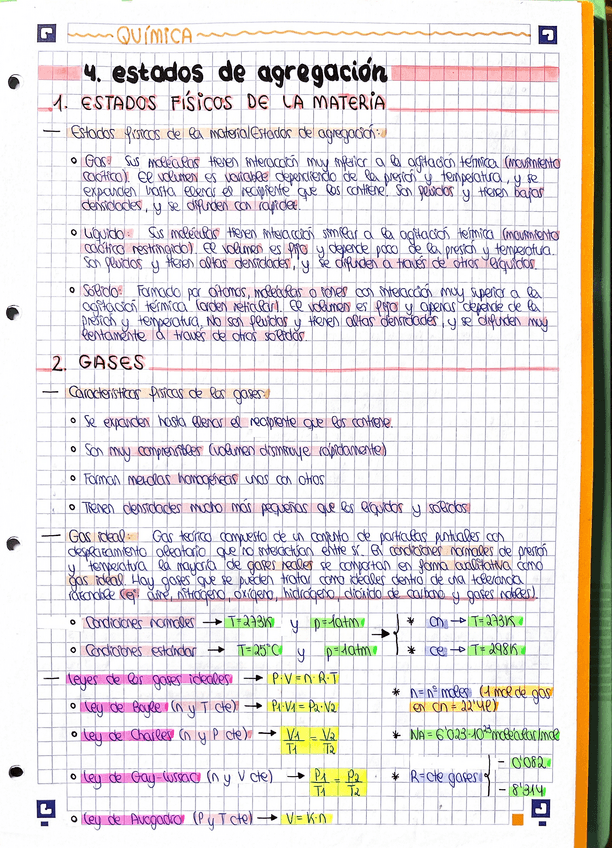 QUÍMICA
4. estados de agregación
1. ESTADOS FÍSICOS DE LA MATERIA
— Estados físicos de la materia/Estados de agregación:
• Gas: Sus moléculas tienen interacción muy inferior a la agitación térmica (movimiento
caótico). El volumen es variable dependiendo de la presión y temperatura, y se
expanden hasta llenar el recipiente que los contiene. Son fluidos y tienen bajas
densidades, y se difunden con rapidez.
• Líquido: Sus moléculas tienen interacción similar a la agitación térmica (movimiento
caótico restringido). El volumen es fijo y depende poco de la presión y temperatura.
Son fluidos y tienen altas densidades, y se difunden a través de otros líquidos.
• Sólido: Formado por átomos, moléculas o iones con interacción muy superior a la
agitación térmica (orden reticular). El volumen es fijo y apenas depende de la
presión y temperatura. No son fluidos y tienen altas densidades, y se difunden muy
lentamente a través de otros sólidos.
2. GASES
— Características físicas de los gases:
• Se expanden hasta llenar el recipiente que los contiene.
• Son muy compresibles (volumen disminuye rápidamente)
• Forman mezclas homogéneas unos con otros
• Tienen densidades mucho más pequeñas que los líquidos y sólidos
— Gas ideal: Gas teórico compuesto de un conjunto de partículas puntuales con
desplazamiento aleatorio que no interactúan entre sí. En condiciones normales de presión
y temperatura la mayoría de gases reales se comportan en forma cualitativa como
gas ideal. Hay gases que se pueden tratar como ideales dentro de una tolerancia
razonable (ej: aire, nitrógeno, oxígeno, hidrógeno, dióxido de carbono y gases nobles).
• Condiciones normales → T=273K y p=1atm → * cn → T=273K
• Condiciones estándar → T=25°C y p=1atm * ce → T=298K
— Leyes de los gases ideales → P·V=n·R·T
* n=nº moles (1 mol de gas
en cn = 22'4l)
• Ley de Boyle (n y T cte) → P1·V1=P2·V2
• Ley de Charles (n y P cte) → V1/T1 = V2/T2
* NA=6'023·10²³ moléculas/mol
• Ley de Gay-Lussac (n y V cte) → P1/T1 = P2/T2
* R=cte gases { - 0'082
- 8'314
• Ley de Avogadro (P y T cte) → V=K·n